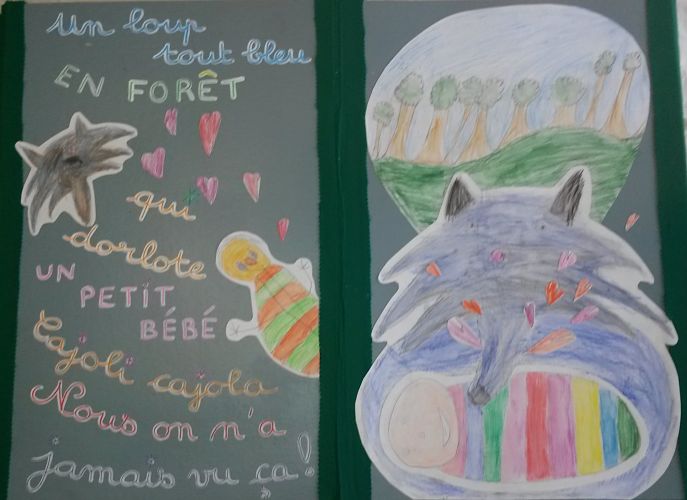 Un loup
tout bleu
EN FORÊT
qui
dorlote
UN
PETIT
BÉBÉ
Cajoli cajola
Nous on n'a
jamais vu ça !